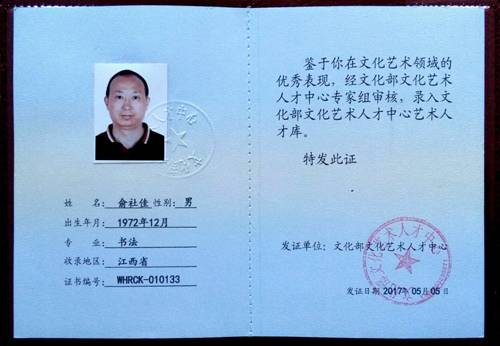 姓 名：俞社佳 性别：男
出生年月：1972年12月
专 业：书法
收录地区：江西省
证书编号：WHRCK-010133
鉴于你在文化艺术领域的
优秀表现，经文化部文化艺术
人才中心专家组审核，录入文
化部文化艺术人才中心艺术人
才库。
特发此证
发证单位：文化部文化艺术人才中心
发证日期 2017年05月05日